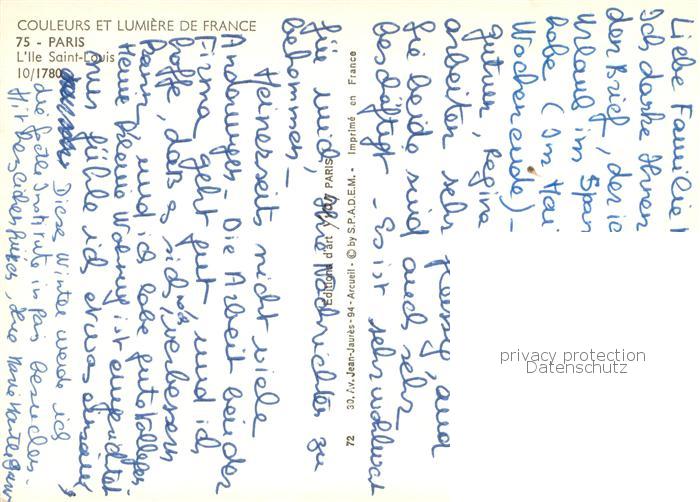 COULEURS ET LUMIÈRE DE FRANCE
75 - PARIS
L'Ile Saint-Louis
10/1780
Liebe Familie
Ich danke Ihnen
der Brief, der ic
Urlaub im Spa
habe (Im Mai
Wochenende) -
gutum, Regina
arbeiten sehr fleissig, und
Sie beide sind auch sehr
beschäftigt - Es ist sehr wertvoll
für mich, Ihre Nachrichten zu
bekommen -
Meinerseits nicht viele
Änderungen - Die Arbeit bei der
Firma geht gut und ich
hoffe, dass es sich verbessern
kann, und ich habe gute Kollegen
Meine kleine Wohnung ist eingerichtet
mir fühle ich etwas einsam,
Diesen Winter werde ich
die Goethe Institute in Paris besuchen -
Mit herzlichen Grüssen, Ihre Marie
72 30. Av. Jean-Jaurès - 94 - Arcueil - © by S.P.A.D.E.M. - Imprimé en France
Editions d'art PARIS
privacy protection
Datenschutz